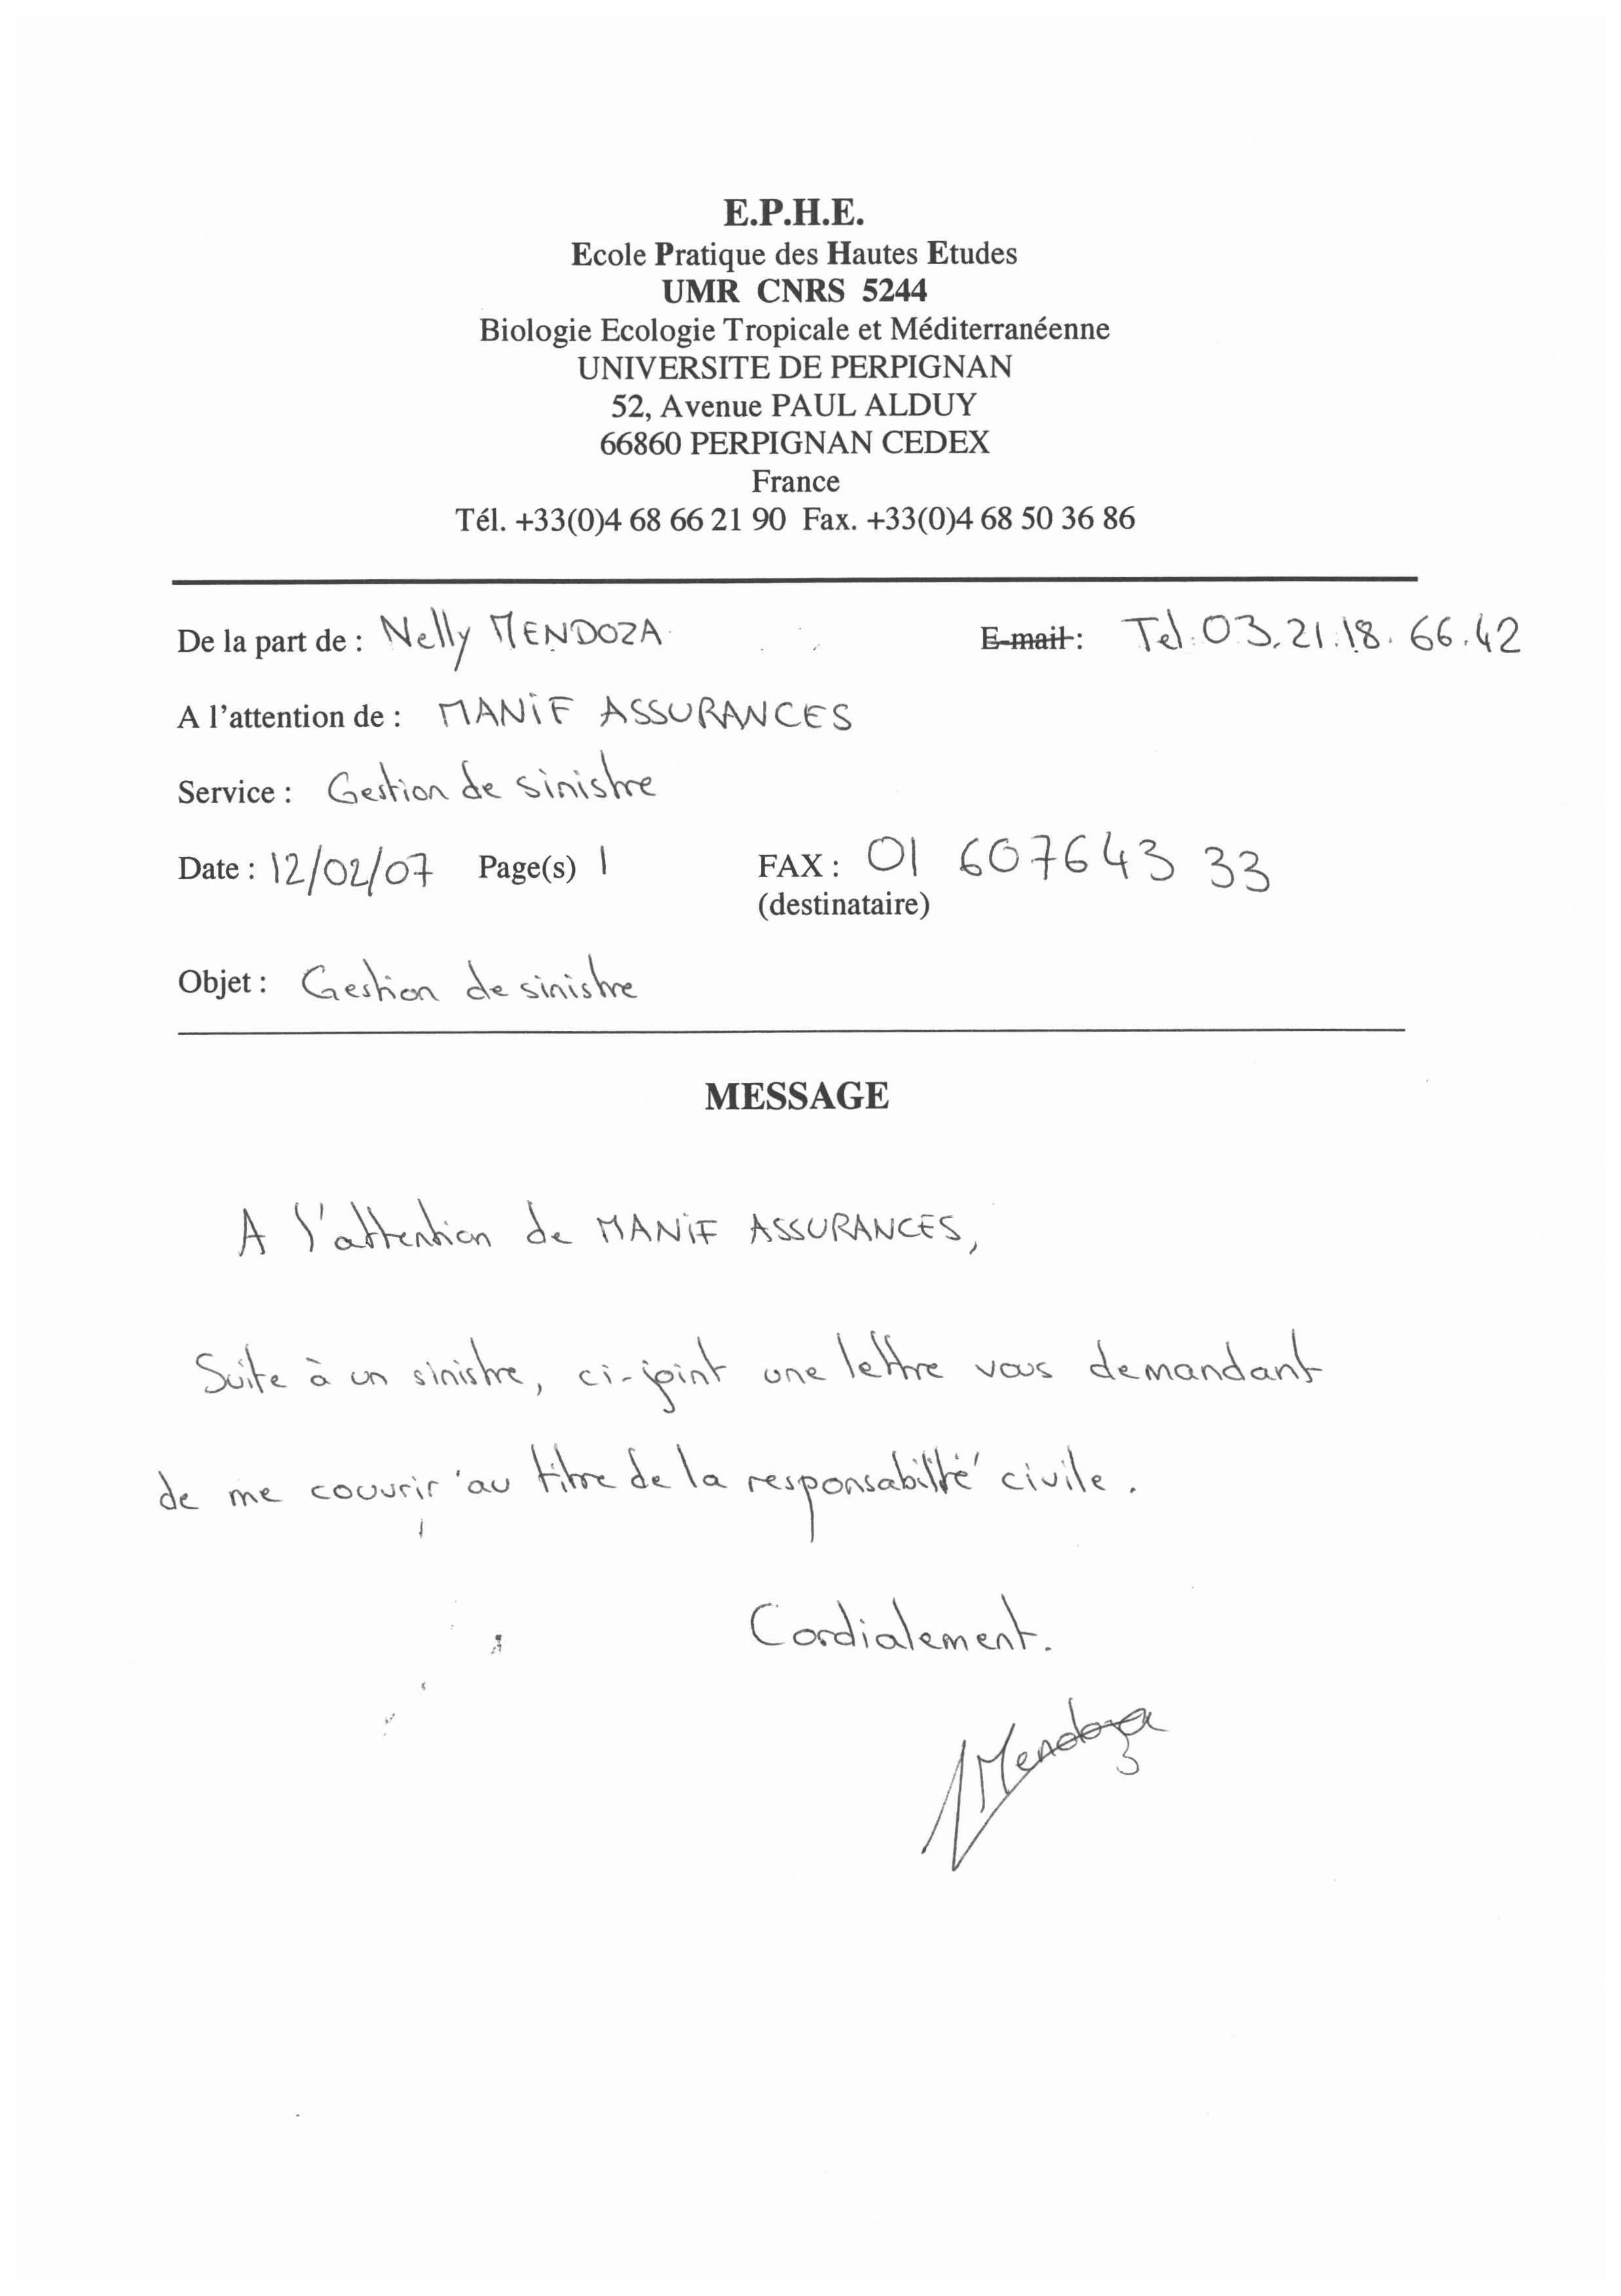 E.P.H.E.
Ecole Pratique des Hautes Etudes
UMR CNRS 5244
Biologie Ecologie Tropicale et Méditerranéenne
UNIVERSITE DE PERPIGNAN
52, Avenue PAUL ALDUY
66860 PERPIGNAN CEDEX
France
Tél. +33(0)4 68 66 21 90 Fax. +33(0)4 68 50 36 86
De la part de : Nelly MENDOZA E-mail : Tel. 03.21.18.66.42
A l'attention de : MANiF ASSURANCES
Service : Gestion de sinistre
Date : 12/02/07 Page(s) 1 FAX : 01 607643 33
(destinataire)
Objet : Gestion de sinistre
MESSAGE
A l'attention de MANiF ASSURANCES,
Suite à un sinistre, ci-joint une lettre vous demandant
de me couvrir au titre de la responsabilité civile.
Cordialement.
Mendoza